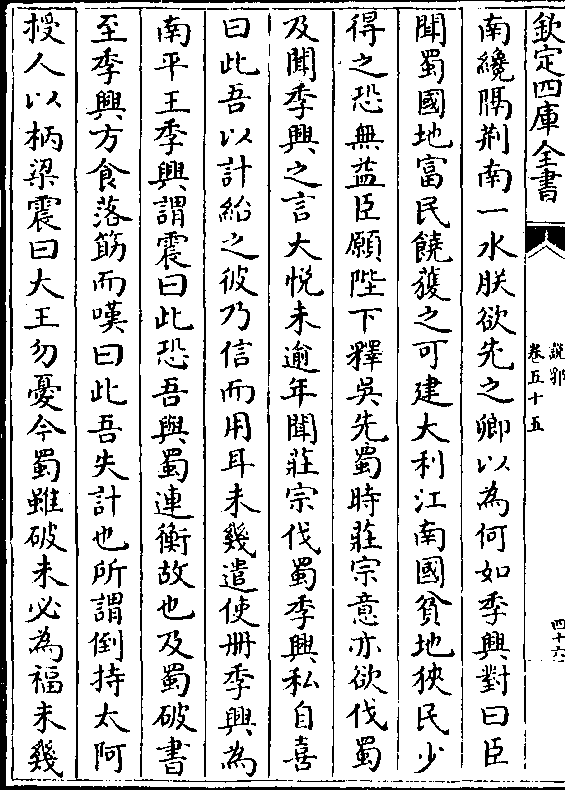 欽定四庫全書
說郛
卷五十五
四十六
南纔隅荆南一水朕欲先之卿以為何如季興對曰臣
聞蜀國地富民饒獲之可建大利江南國貧地狹民少
得之恐無益臣願陛下釋吳先蜀時莊宗意亦欲伐蜀
及聞季興之言大悅未逾年聞莊宗伐蜀季興私自喜
曰此吾以計紿之彼乃信而用耳未幾遣使册季興為
南平王季興謂震曰此恐吾與蜀連衡故也及蜀破書
至季興方食落筯而嘆曰此吾失計也所謂倒持太阿
授人以柄梁震曰大王勿憂今蜀雖破未必為福未幾